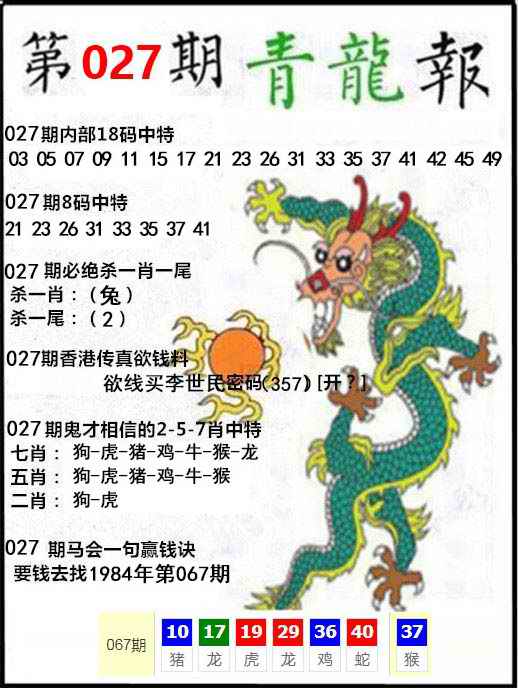 第027期青龍報
027期内部18码中特
03 05 07 09 11 15 17 21 23 26 31 33 35 37 41 42 45 49
027期8码中特
21 23 26 31 33 35 37 41
027 期必绝杀一肖一尾
杀一肖：（兔）
杀一尾：（2）
027期香港传真欲钱料
欲线买李世民密码(357) [开?]
027期鬼才相信的2-5-7肖中特
七肖： 狗-虎-猪-鸡-牛-猴-龙
五肖： 狗-虎-猪-鸡-牛-猴
二肖： 狗-虎
027 期马会一句赢钱诀
要钱去找1984年第067期
067期 10 17 19 29 36 40 37
猪 龙 虎 龙 鸡 蛇 猴